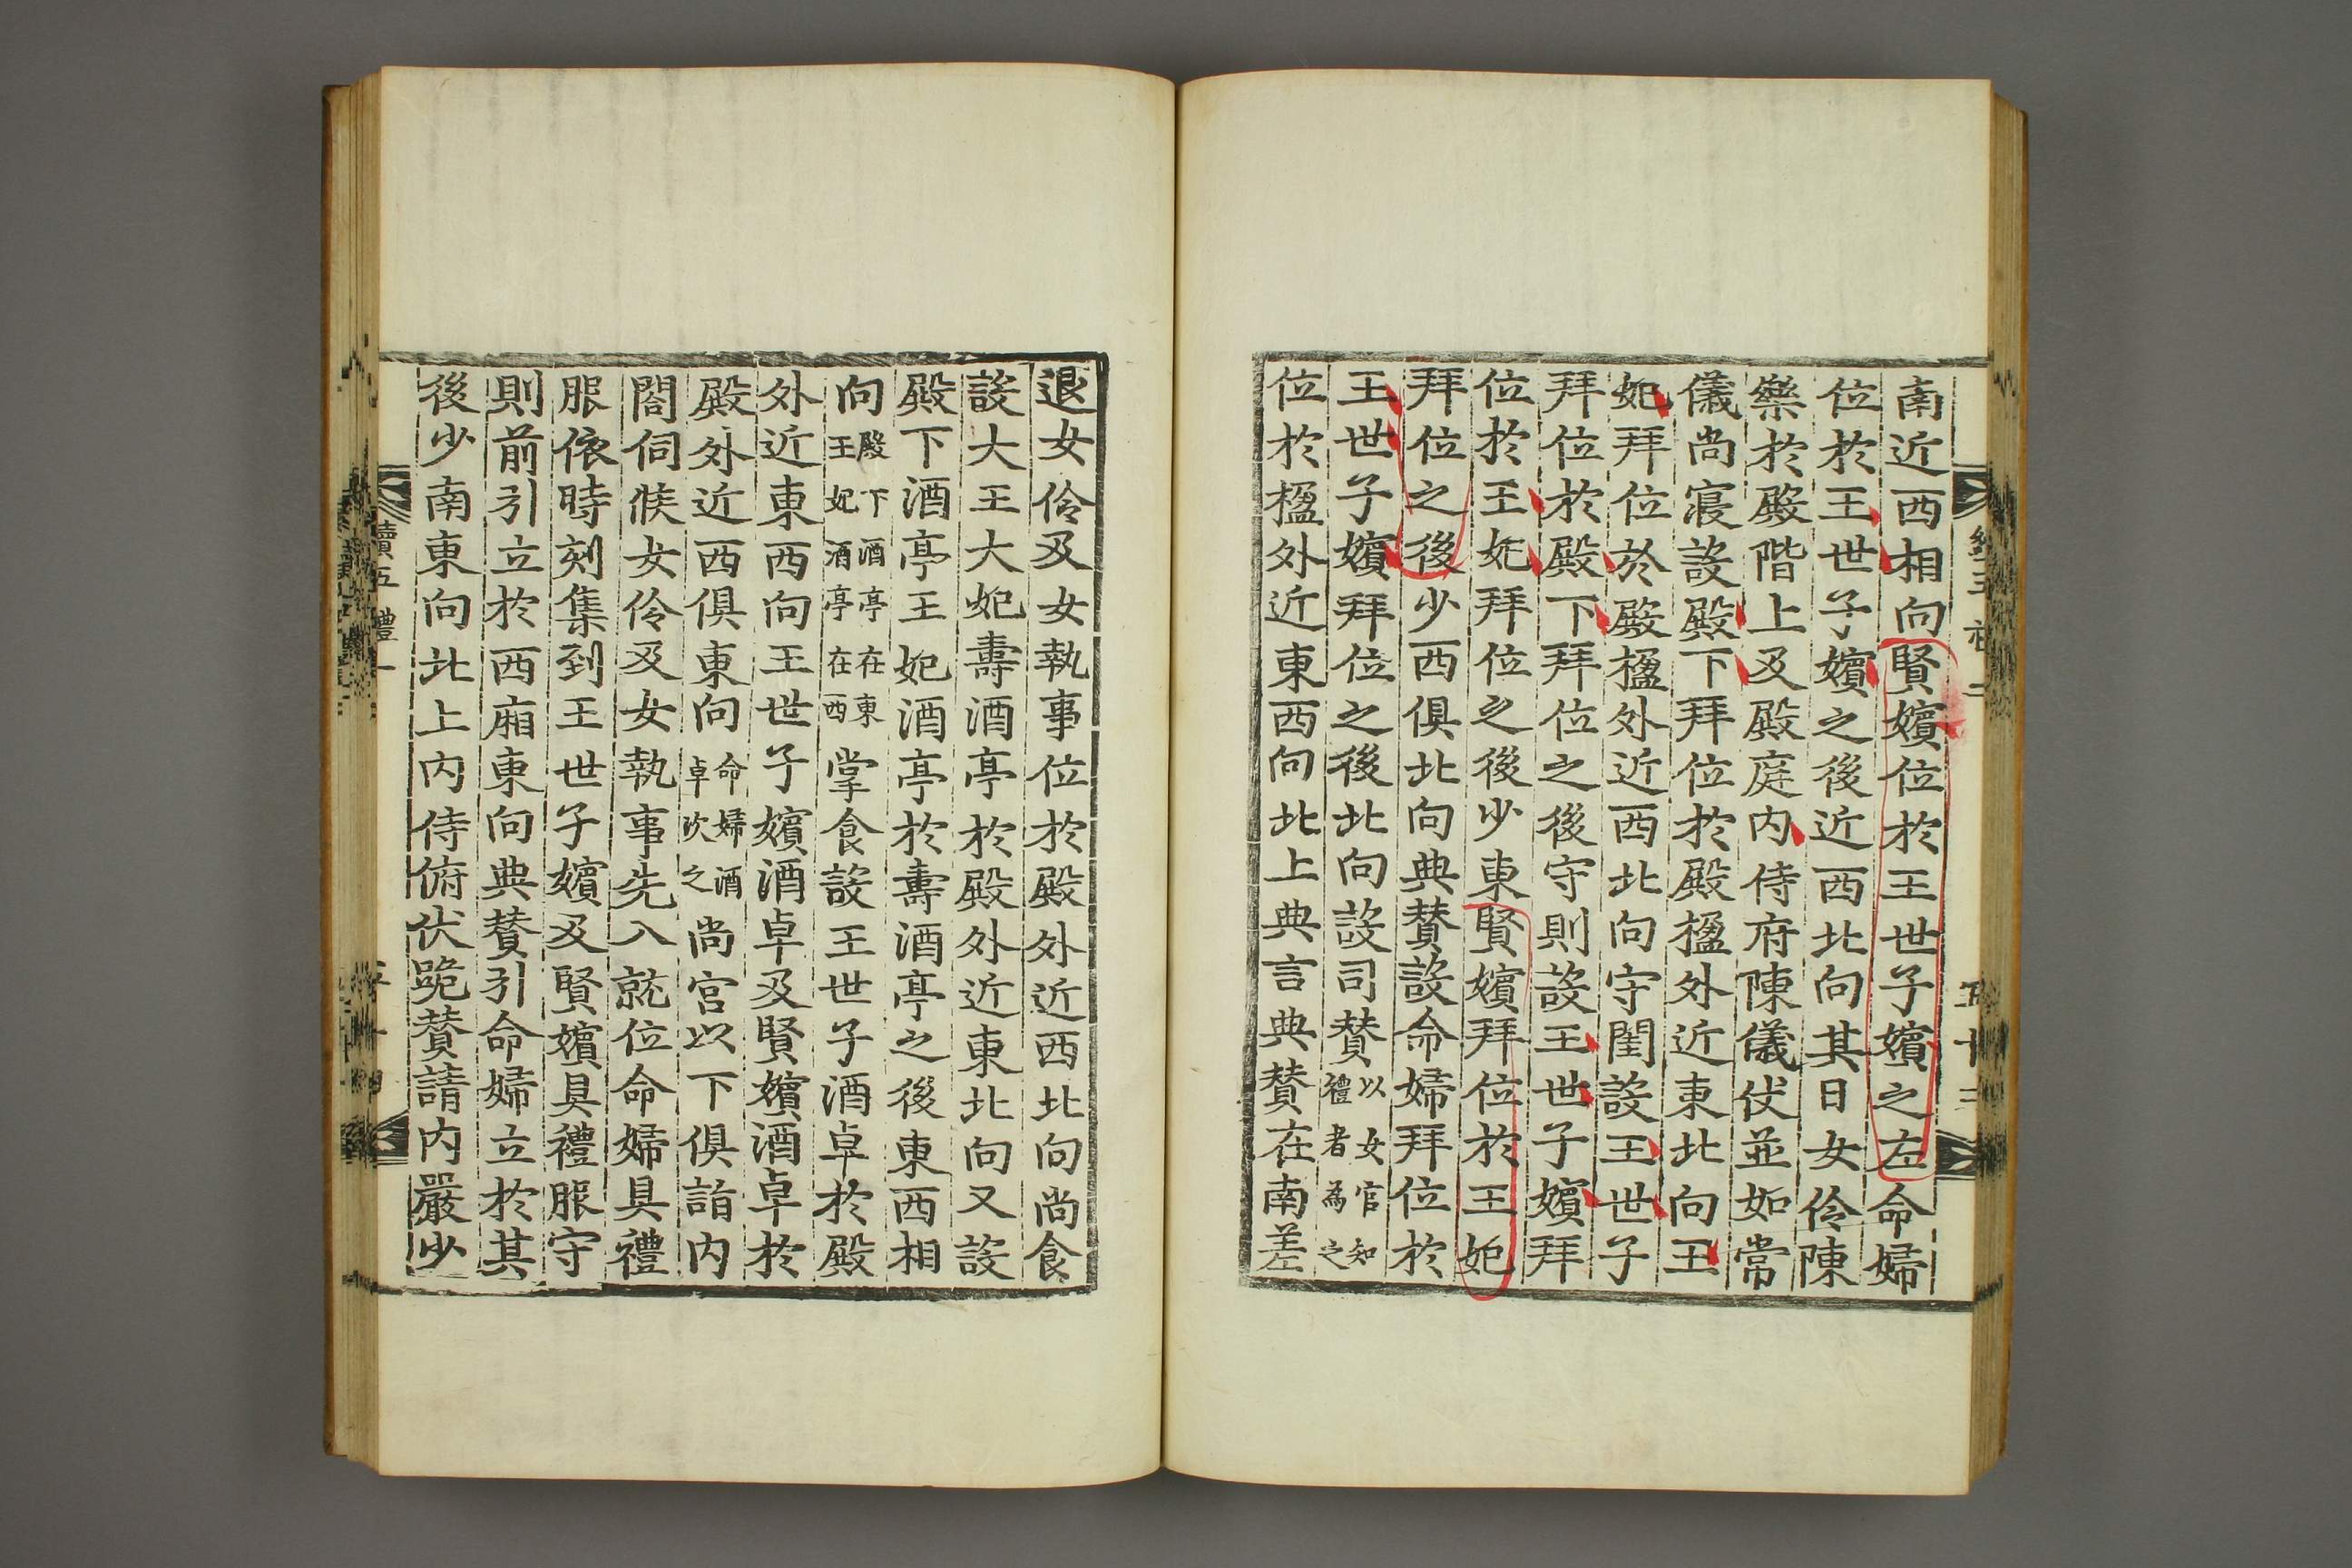 南近西相向賢嬪位於王世子嬪之左命婦
位於王世子嬪之後近西北向其日女伶陳
樂於殿階上及殿庭內侍府陳儀仗並如常
儀尚寢設殿下拜位於殿楹外近東北向王
妃拜位於殿楹外近西北向守閨設王世子
拜位於殿下拜位之後守則設王世子嬪拜
位於王妃拜位之後少東賢嬪拜位於王妃
拜位之後少西俱北向典贊設命婦拜位於
王世子嬪拜位之後北向設司贊以女官知禮者為之
位於楹外近東西向北上典言典贊在南差
退女伶及女執事位於殿外近西北向尚食
設大王大妃壽酒亭於殿外近東北向又設
殿下酒亭王妃酒亭於壽酒亭之後東西相
向殿下酒亭在東王妃酒亭在西掌食設王世子酒卓於殿
外近東西向王世子嬪酒卓及賢嬪酒卓於
殿外近西俱東向命婦酒卓次之尚宮以下俱詣內
閤伺候女伶及女執事先入就位命婦具禮
服依時刻集到王世子嬪及賢嬪具禮服守
則前引立於西廂東向典贊引命婦立於其
後少南東向北上內侍俯伏跪贊請內嚴少
續五禮